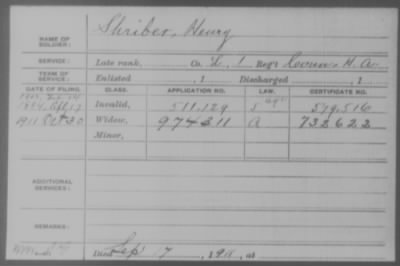 Shriber, Henry
NAME OF SOLDIER:
SERVICE: Late rank, Co. L, 1 Reg't Conn. H. A.
TERM OF SERVICE: Enlisted , 1 Discharged , 1
DATE OF FILING. CLASS. APPLICATION NO. LAW. CERTIFICATE NO.
1884, Apl. 17 Invalid, 511,129 579,516
1911 Oct 30 Widow, 974311 A 732622
Minor,
ADDITIONAL SERVICES:
REMARKS:
Died Sep 17, 1911, at